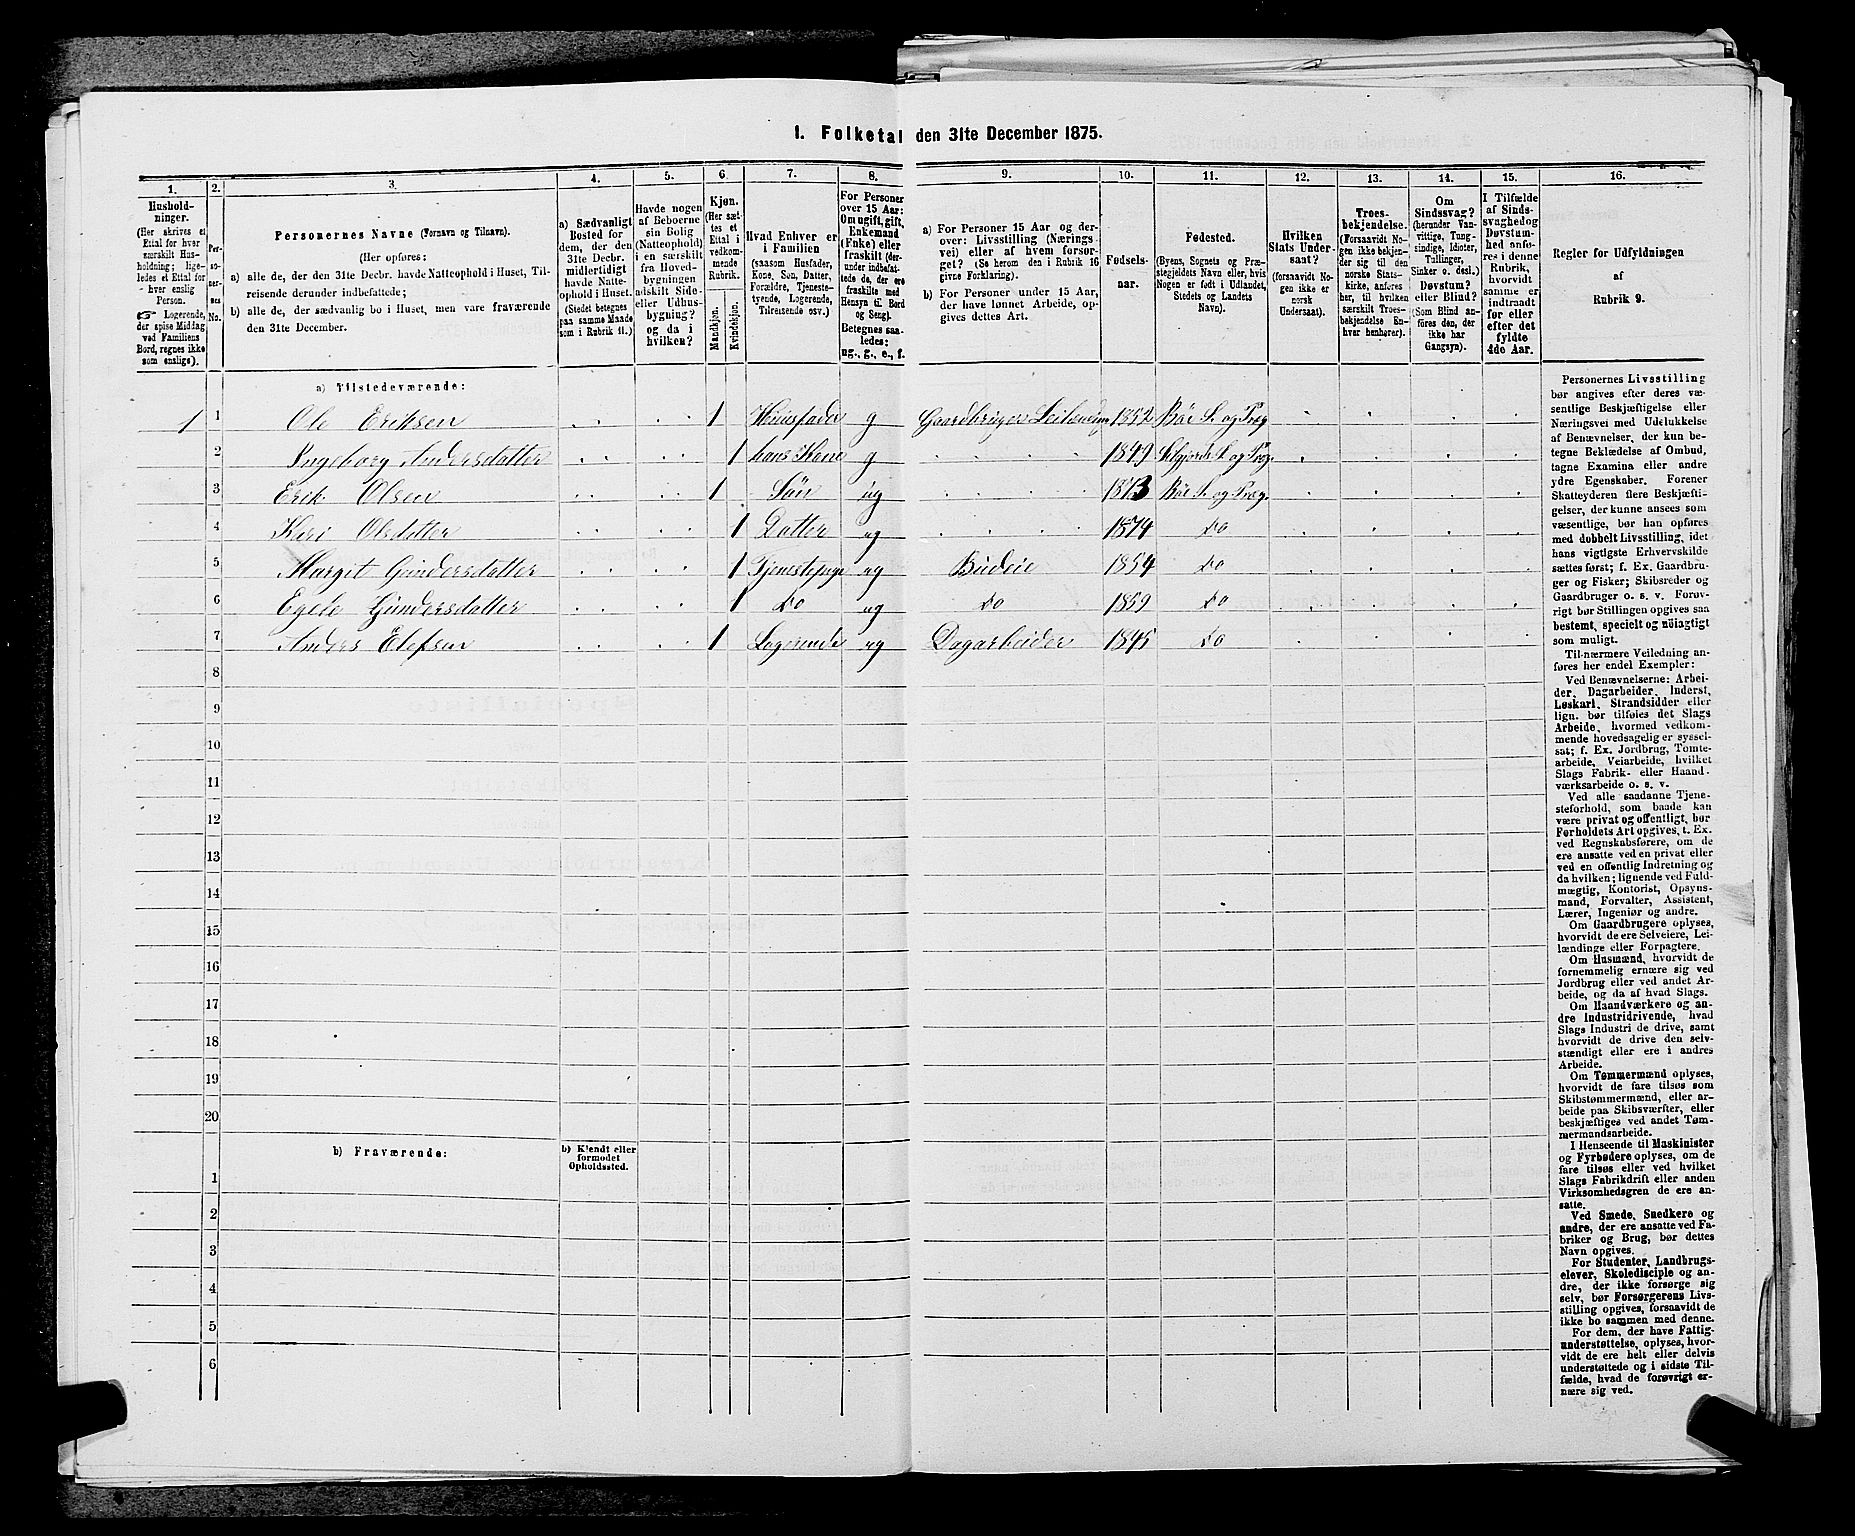 1. Folketal den 31te December 1875.
1. 2. 3. 4. 5. 6. 7. 8. 9. 10. 11. 12. 13. 14. 15. 16.
Husholdninger.
(Her skrives et
Ettal for hver
særskilt Husholdning;
ligeledes et Ettal for
hver enslig
Person.
☞ Logerende,
der spise Middag
ved Familiens
Bord, regnes ikke
som enslige).
Personernes No.
Personernes Navne (Fornavn og Tilnavn).
(Her opføres:
a) alle de, der den 31te Decbr. havde Natteophold i Huset, Tilreisende derunder indbefattede;
b) alle de, der sædvanlig bo i Huset, men vare fraværende
den 31te December.
a) Sædvanligt
Bosted for
dem, der den
31te Decbr.
midlertidigt
havde Natteophold
i Huset.
(Stedet betegnes
paa samme Maade
som i Rubrik 11.)
Havde nogen
af Beboerne
sin Bolig
(Natteophold)
i en særskilt
fra Hovedbygningen
adskilt Side
eller Udhusbygning?
og da i
hvilken?
Kjøn.
(Her sættes
et
Ettal i
vedkommende
Rubrik.
Mandkjøn.
Kvindekjøn.
Hvad Enhver er
i Familien
(saasom Husfader,
Kone, Søn, Datter,
Forældre, Tjenestetyende,
Logerende,
Tilreisende osv.)
For Personer
over 15 Aar:
Om ugift, gift,
Enkemand
(Enke) eller
fraskilt (derunder
indbefattede
de, der ere
fraskilte med
Hensyn til Bord
og Seng).
Betegnes saaledes:
ug., g., e., f.
a) For Personer 15 Aar og derover:
Livsstilling (Næringsvei)
eller af hvem forsørget?
(Se herom den i Rubrik 16
givne Forklaring).
b) For Personer under 15 Aar,
der have lønnet Arbeide, opgives
dettes Art.
Fødselsaar.
Fødested.
(Byens, Sognets og Præstegjeldets
Navn eller, hvis
Nogen er født i Udlandet,
Stedets og Landets
Navn).
Hvilken
Stats Undersaat?
(forsaavidt Nogen
ikke er
norsk
Undersaat).
Troesbekjendelse.
(Forsaavidt Nogen
ikke bekjender
sig til den
norske Statskirke,
anføres
her, til hvilken
særskilt Troesbekjendelse
Enhver
henhører).
Om
Sindssvag?
(herunder Vanvittige,
Tungsindige,
Idioter,
Tullinger,
Sinker o. desl.)
Døvstum?
eller Blind?
(Som Blind anføres
den, der
ikke har
Gangsyn).
I Tilfælde
af Sindssvaghed
og
Døvstumhed
anføres
i denne
Rubrik,
hvorvidt
samme er
indtraadt
før eller
efter det
fyldte
4de Aar.
Regler for Udfyldningen
af
Rubrik 9.
a) Tilstedeværende:
1 1 Ole Eriksen 1 Huusfader g Gaardbruger Leilending 1852 Böe S. og Præg.
2 Ingeborg Andersdatter 1 hans Kone g 1849 S. og Præg.
3 Erik Olsen 1 Sön ug 1873 Böe S. og Præg.
4 Kari Olsdatter 1 Datter ug 1874 Do
5 Margit Gundersdatter 1 Tjenestepige ug Budeie 1854 Do
6 Gundersdatter 1 Do ug Do 1859 Do
7 Anders Elefsen 1 Logerende ug Dagarbeider 1845 Do
8
9
10
11
12
13
14
15
16
17
18
19
20
b) Fraværende:
b) Kjendt eller
formodet
Opholdssted.
1
2
3
4
5
6
Personernes Livsstilling
bør angives efter deres væsentlige
Beskjæftigelse eller
Næringsvei med Udelukkelse
af Benævnelser, der kun betegne
Beklædelse af Ombud,
tagne Examina eller andre
ydre Egenskaber. Forener
Skatteyderen flere Beskjæftigelser,
der kunne ansees som
væsentlige, bør han opføres
med dobbelt Livsstilling, idet
hans vigtigste Erhvervskilde
sættes først; f. Ex. Gaardbruger
og Fisker; Skibsreder og
Gaardbruger o. s. v. Forøvrigt
bør Stillingen opgives saa
bestemt, specielt og nöiagtigt
som muligt.
Til nærmere Veiledning anføres
her endel Exempler:
Ved Benævnelserne: Arbeider,
Dagarbeider, Inderst,
Løskarl, Strandsidder eller
lign. bør tilføies det Slags
Arbeide, hvormed vedkommende
hovedsagelig er sysselsat;
f. Ex. Jordbrug, Tomtearbeide,
Veiarbeide, hvilket
Slags Fabrik- eller Haandværksarbeide
o. s. v.
Ved alle saadanne Tjenesteforhold,
som baade kan
være privat og offentligt, bør
Forholdets Art opgives, t. Ex.
ved Regnskabsførere, om de
ere ansatte ved en privat eller
ved en offentlig Indretning og
da hvilken; lignende ved Fuldmægtig,
Kontorist, Opsynsmand,
Forvalter, Assistent,
Lærer, Ingeniør og andre.
Om Gaardbrugere oplyses,
hvorvidt de ere Selveiere, Leilændinge
eller Forpagtere.
Om Husmænd, hvorvidt de
fornemmelig ernære sig ved
Jordbrug eller ved andet Arbeide,
og da af hvad Slags.
Om Haandværkere og andre
Industridrivende, hvad
Slags Industri de drive, samt
hvorvidt de drive den selvstændigt
eller ere i andres
Arbeide.
Om Tømmermænd oplyses,
hvorvidt de fare tilsøs som
Skibstømmermænd, eller arbeide
paa Skibsværfter, eller
beskjæftiges ved andet Tømmermandsarbeide.
I Henseende til Maskinister
og Fyrbødere oplyses, om de
fare tilsøs eller ved hvilket
Slags Fabrikdrift eller anden
Virksomhedsgren de ere ansatte.
Ved Smede, Snedkere og
andre, der ere ansatte ved Fabriker
og Brug, bør dettes
Navn opgives.
For Studenter, Landbrugselever,
Skoledisciple og andre,
der ikke forsørge sig
selv, bør Forsørgerens Livsstilling
opgives, forsaavidt de
ikke bo sammen med denne.
For dem, der have Fattigunderstøttelse,
oplyses, hvorvidt
de ere helt eller delvis
understøttede og i sidste Tilfælde,
hvad de forøvrigt ernære
sig ved.